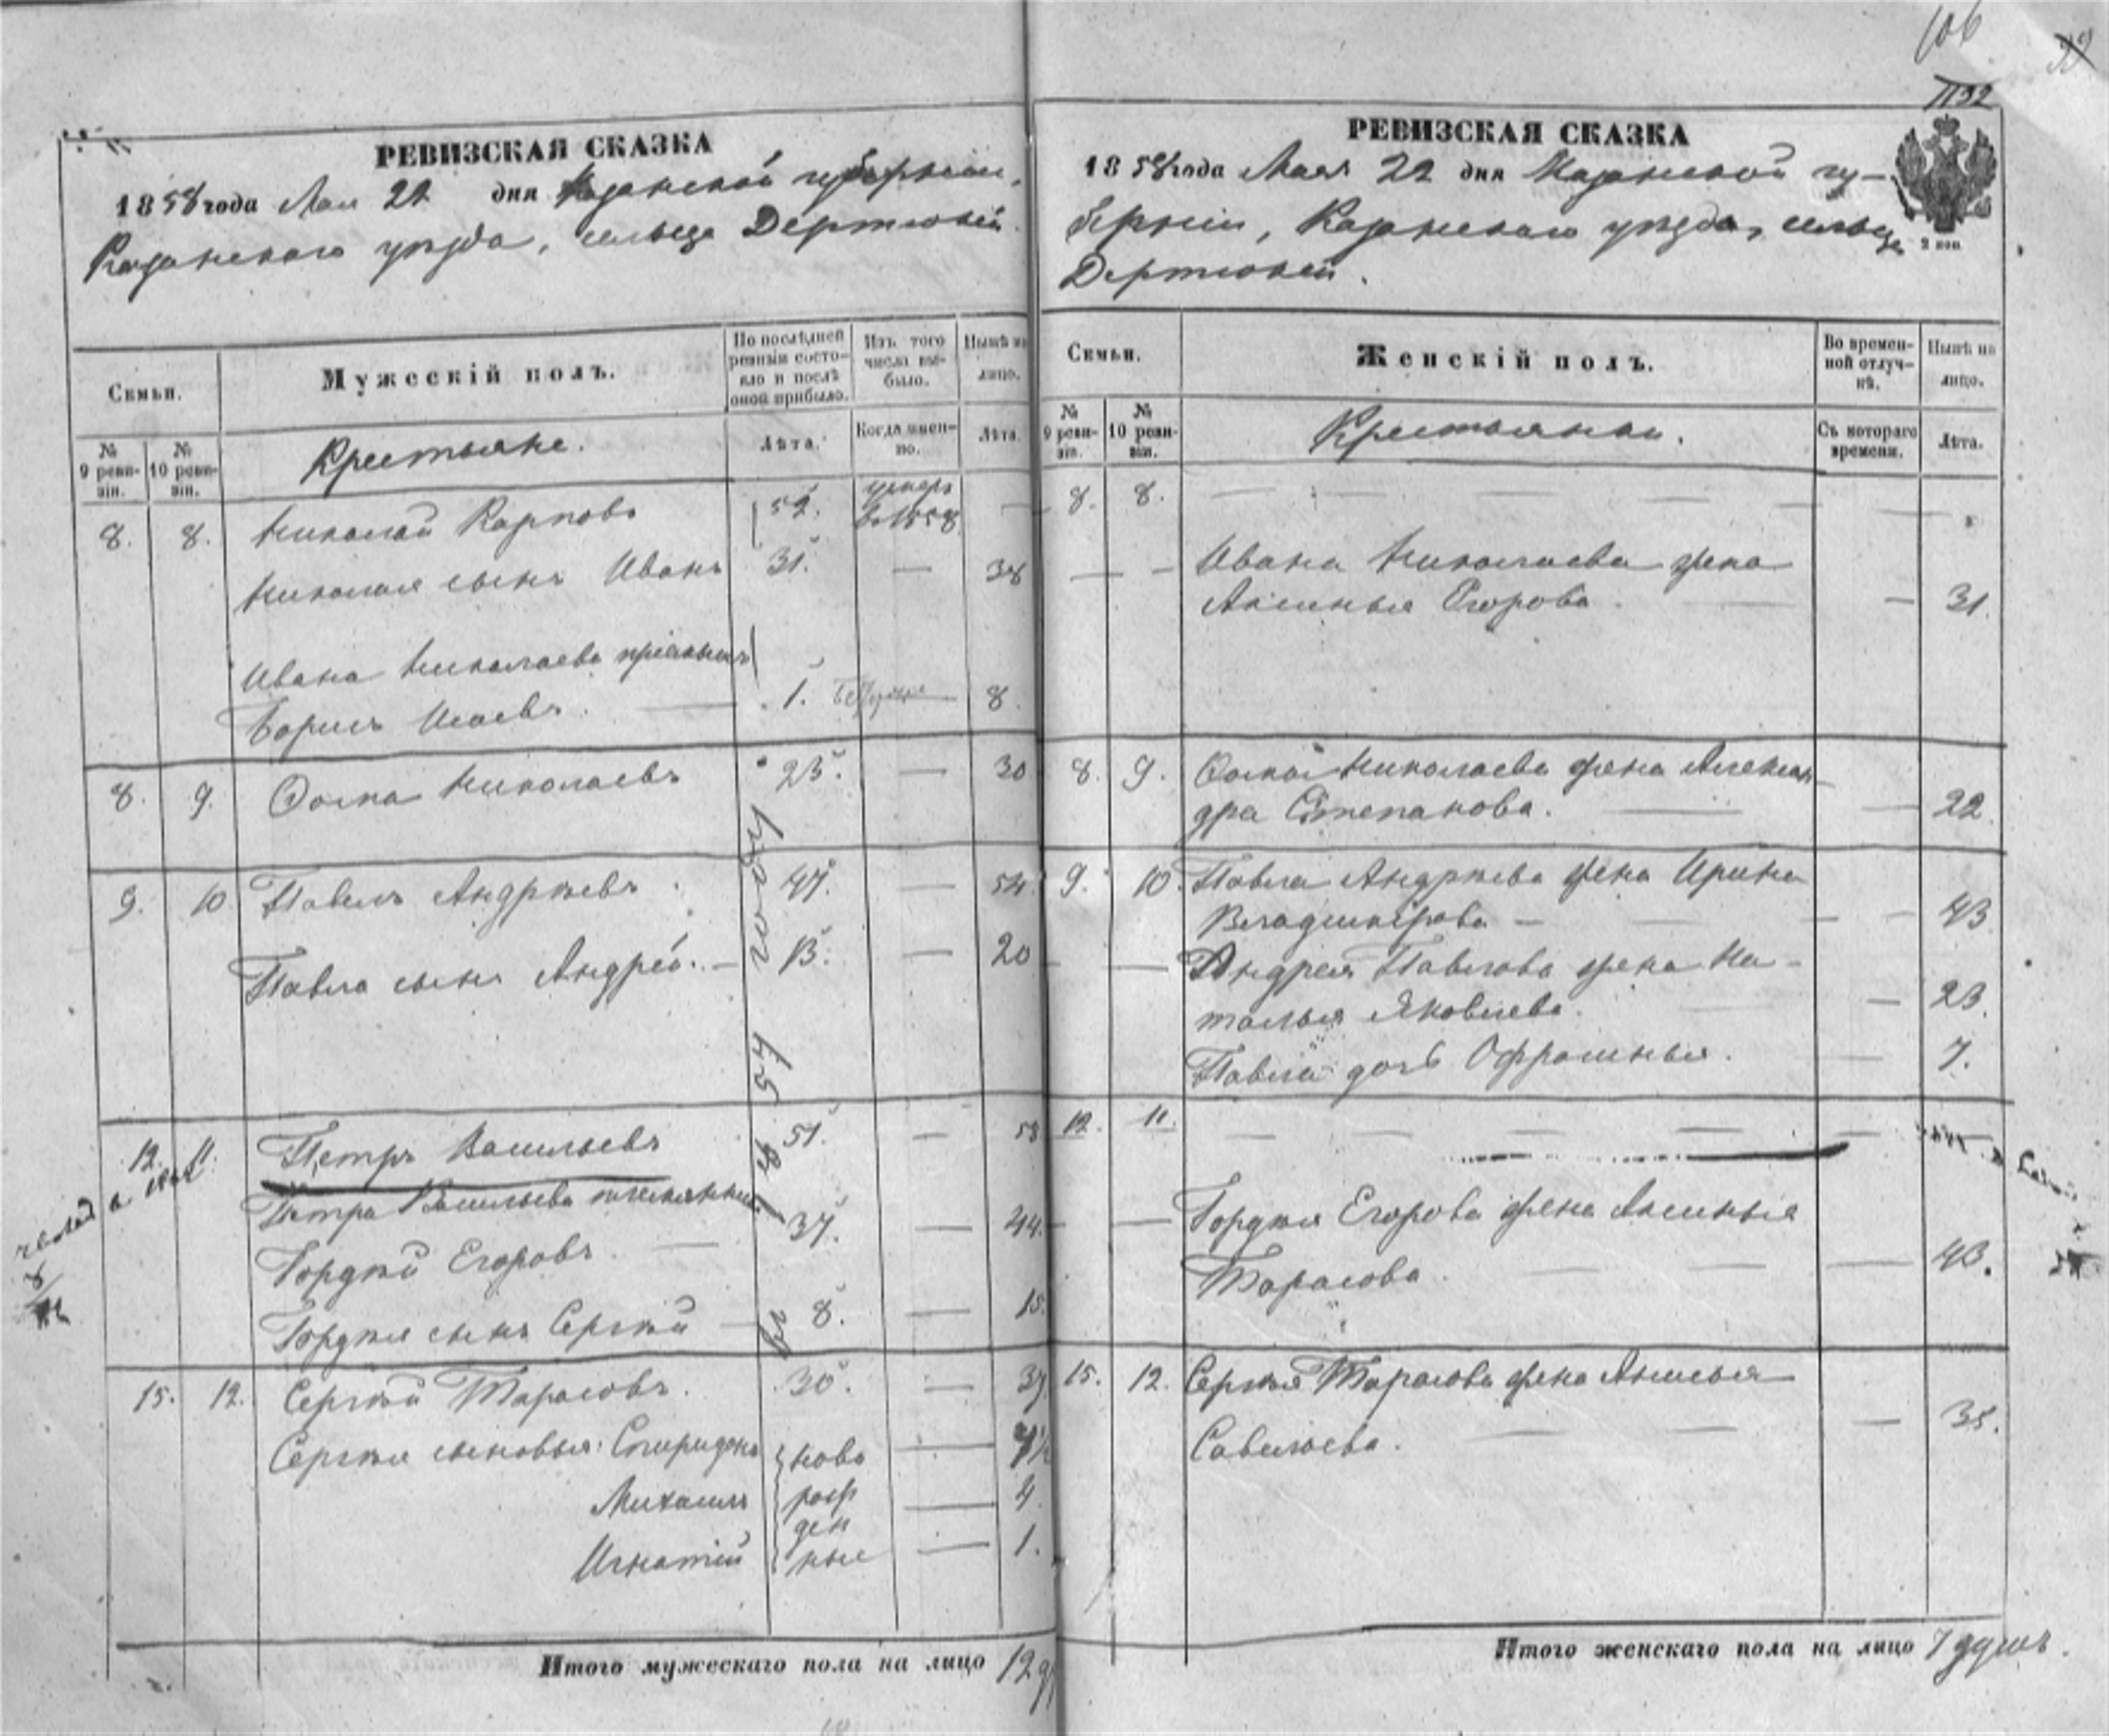 106
32
РЕВИЗСКАЯ СКАЗКА
1858 года Мая 22 дня Казанской губерніи,
Казанскаго уѣзда, сельца Дертюлей
Семьи.
Мужескій полъ.
По послѣдней ревизіи состояло и послѣ оной прибыло.
Изъ того числа выбыло.
Нынѣ на лицо.
№ 9 ревизіи.
№ 10 ревизіи.
Крестьяне.
Лѣта.
Когда именно.
Лѣта.
8. 8. Николай Карповъ 52. умеръ в. 1858 —
Николая сынъ Иванъ 31. — 38
Ивана Николаева пріемышъ
Борисъ Исаевъ. 1. 8.
8. 9. Фома Николаевъ 23. — 30
9. 10 Павелъ Андрѣевъ. 47. — 54.
Павла сынъ Андрей. — 13. — 20
12. 11. Петръ Васильевъ 51. — 58
Петра Васильева племянникъ
Гордѣй Егоровъ. — 37. — 44.
Гордѣя сынъ Сергѣй — 8. — 15.
15. 12. Сергѣй Тарасовъ. 30. — 37
Сергѣя сыновья: Спиридонъ ново —
Михаилъ рож — 4.
ден
Игнатій ные — 1.
Итого мужескаго пола на лицо 12
РЕВИЗСКАЯ СКАЗКА
1858 года Мая 22 дня Казанской гу-
берніи, Казанскаго уѣзда, сельца
Дертюлей.
2 коп
Семьи.
Женскій полъ.
Во временной отлучкѣ.
Нынѣ на лицо.
№ 9 ревизіи.
№ 10 ревизіи.
Крестьянки.
Съ котораго времени.
Лѣта.
8. 8. — — — —
— — Ивана Николаева жена
Аксинья Егорова. — — 31.
8. 9. Фомы Николаева жена Алексан-
дра Степанова. — — 22.
9. 10. Павла Андрѣева жена Ирина
Владимерова — — — 43
— — Андрея Павлова жена На-
талья Яковлева. — 23.
Павла дочь Офросинья. — 7.
12. 11. — — — —
— — Гордѣя Егорова жена Аксинья
Тарасова. — — — 43.
15. 12. Сергѣя Тарасова жена Аксинья
Савельева. — — — 35.
Итого женскаго пола на лицо 7 душъ.